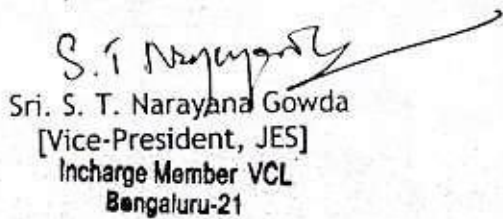 S. T Narayan
Sri. S. T. Narayana Gowda
[Vice-President, JES]
Incharge Member VCL
Bengaluru-21